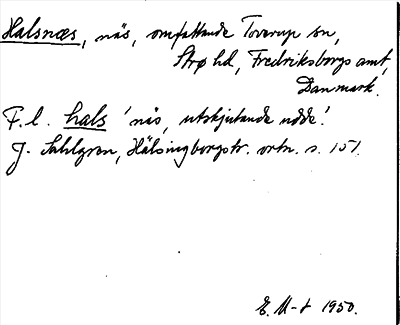 Halsnæs, näs, omfattande Torup sn,
Strø hd, Fredriksborgs amt,
Danmark.
F.l. hals 'näs, utskjutande udde'.
J. Sahlgren, Hälsingborgstr. ortn. s. 151.
E. M-t 1950.